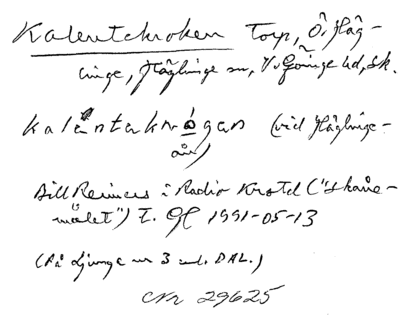 Kalentekroken Torp, Ö. Häg-
linge, Häglinge sn, V. Göinge hd, Sk.
kalentakrógen (vid Häglinge-
ån)
Bill Reimers i Radio Krstd ("Skåne-
målet") t. GH 1991-05-13
(På Ljunge nr 3 enl. DAL.)
Nr 29625